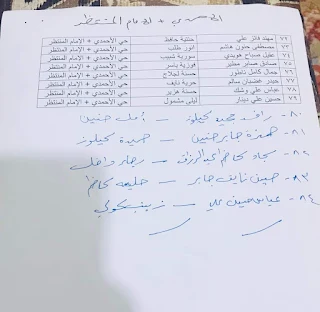 حي الاحمدي + الإمام المنتظر
٧٢ مهند فائز علي حنتية حافظ حي الأحمدي + الإمام المنتظر
٧٣ مصطفى حنون هاشم انور طلب حي الأحمدي + الإمام المنتظر
٧٤ عقيل صباح هويدي سورية شبيب حي الأحمدي + الإمام المنتظر
٧٥ صادق صابر مطير فوزية ياسر حي الأحمدي + الإمام المنتظر
٧٦ جمال كامل ناطور حسنة لجلاج حي الأحمدي + الإمام المنتظر
٧٧ حيدر غضبان سالم حربة نايف حي الأحمدي + الإمام المنتظر
٧٨ عباس علي وشك حسنة هزبر حي الأحمدي + الإمام المنتظر
٧٩ حسين علي دينار ليلى مشحول حي الأحمدي + الإمام المنتظر
٨٠ - رافد مجيد كيلوز – أمل حنين
٨١ - حمزه جابر حنين – حميدة كيلوز
٨٢ - سجاد كاظم عبد الرزاق –
٨٣ - حسين نايف جابر – حليمه كاظم
٨٤ - عباس حسين علي – زينب